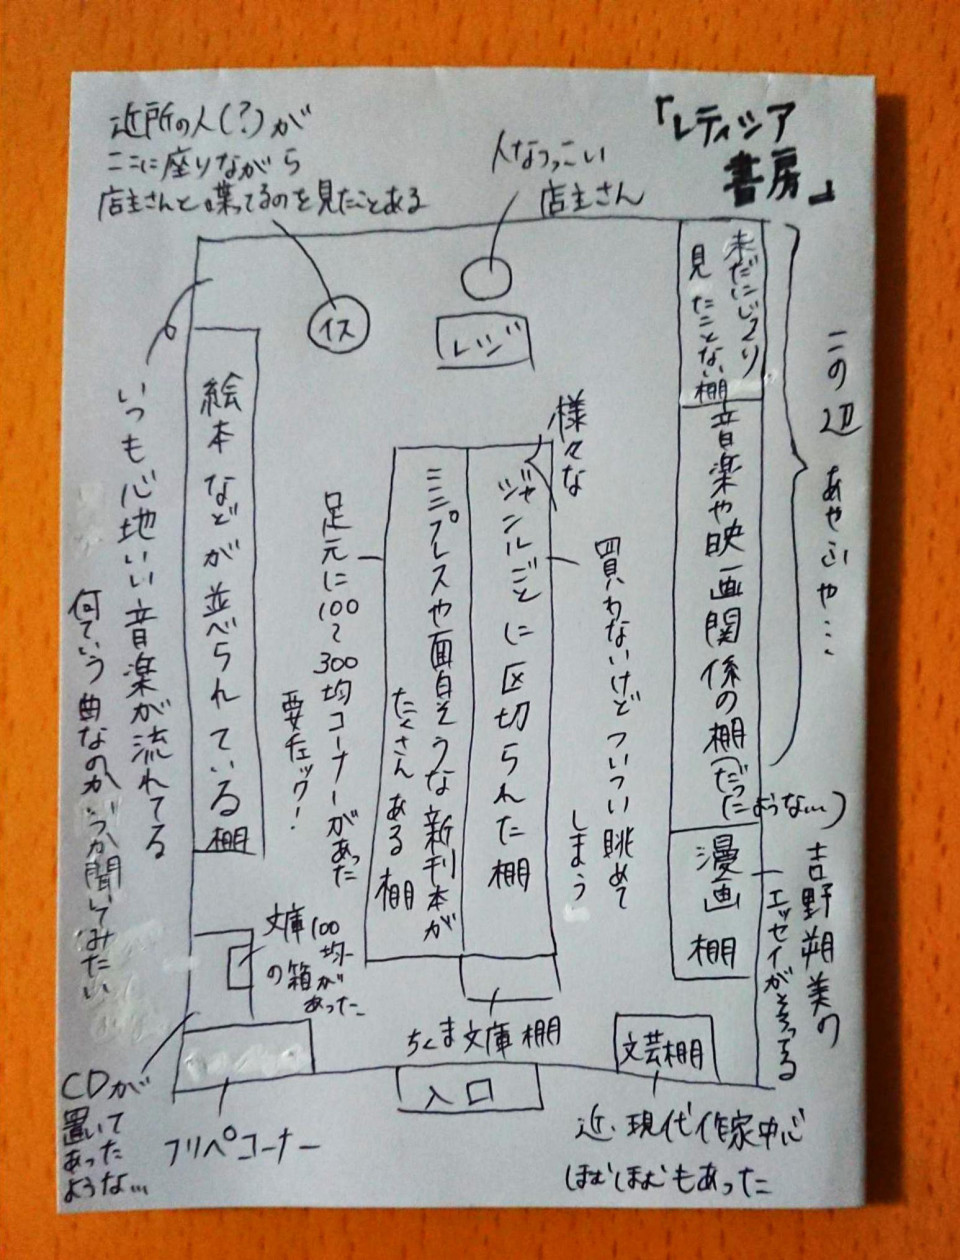 「レティシア
書房」
近所の人(?)が
ここに座りながら
店主さんと喋ってるのを見たことある
人なつっこい
店主さん
イス
レジ
未だにじっくり
見たことない棚
音楽や映画関係の棚(だっ
たような…)
この辺あやふや…
漫画棚
吉野朔美の
エッセイがそろってる
様々な
ジャンルごとに区切られた棚
買わないけどついつい眺めて
しまう
ミニプレスや面白そうな新刊本が
たくさんある棚
足元に100〜300均コーナーがあった
要チェック!
絵本などが並べられている棚
いつも心地いい音楽が流れてる
何ていう曲なのかいつか聞いてみたい
文庫100
均
の箱が
あった
ちくま文庫棚
文芸棚
入口
近・現代作家中心
ほむほむもあった
フリペコーナー
CDが
置いて
あった
ような…